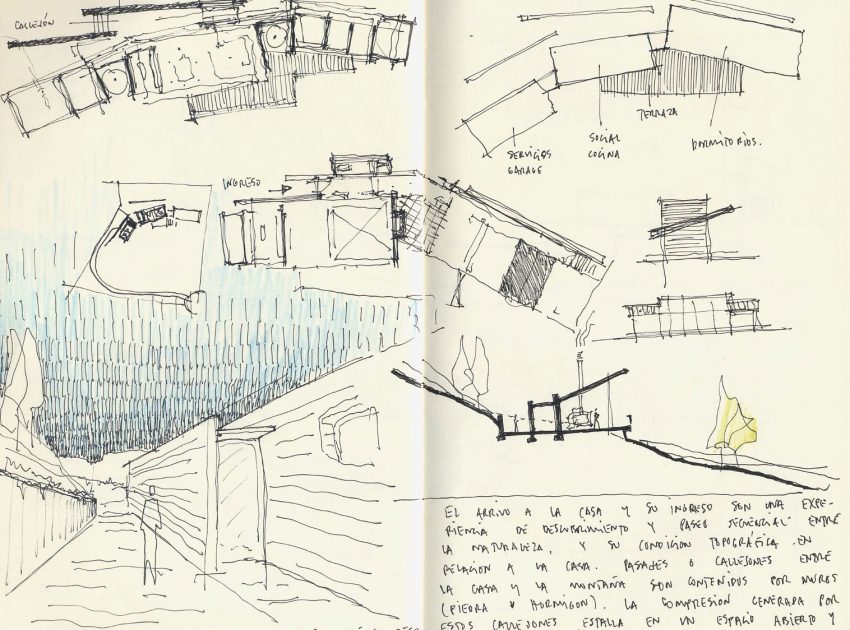 CALLEJÓN
TERRAZA
SOCIAL
COCINA
DORMITORIOS.
SERVICIOS
GARAGE
INGRESO
EL ARRIVO A LA CASA Y SU INGRESO SON UNA EXPE-
RIENCIA DE DESCUBRIMIENTO Y PASEO SECUENCIAL ENTRE
LA NATURALEZA, Y SU CONDICION TOPOGRÁFICA EN
RELACION A LA CASA. PASAJES O CALLEJONES ENTRE
LA CASA Y LA MONTAÑA SON CONTENIDOS POR MUROS
(PIEDRA Y HORMIGON). LA COMPRESION GENERADA POR
ESTOS CALLEJONES ESTALLA EN UN ESPACIO ABIERTO Y